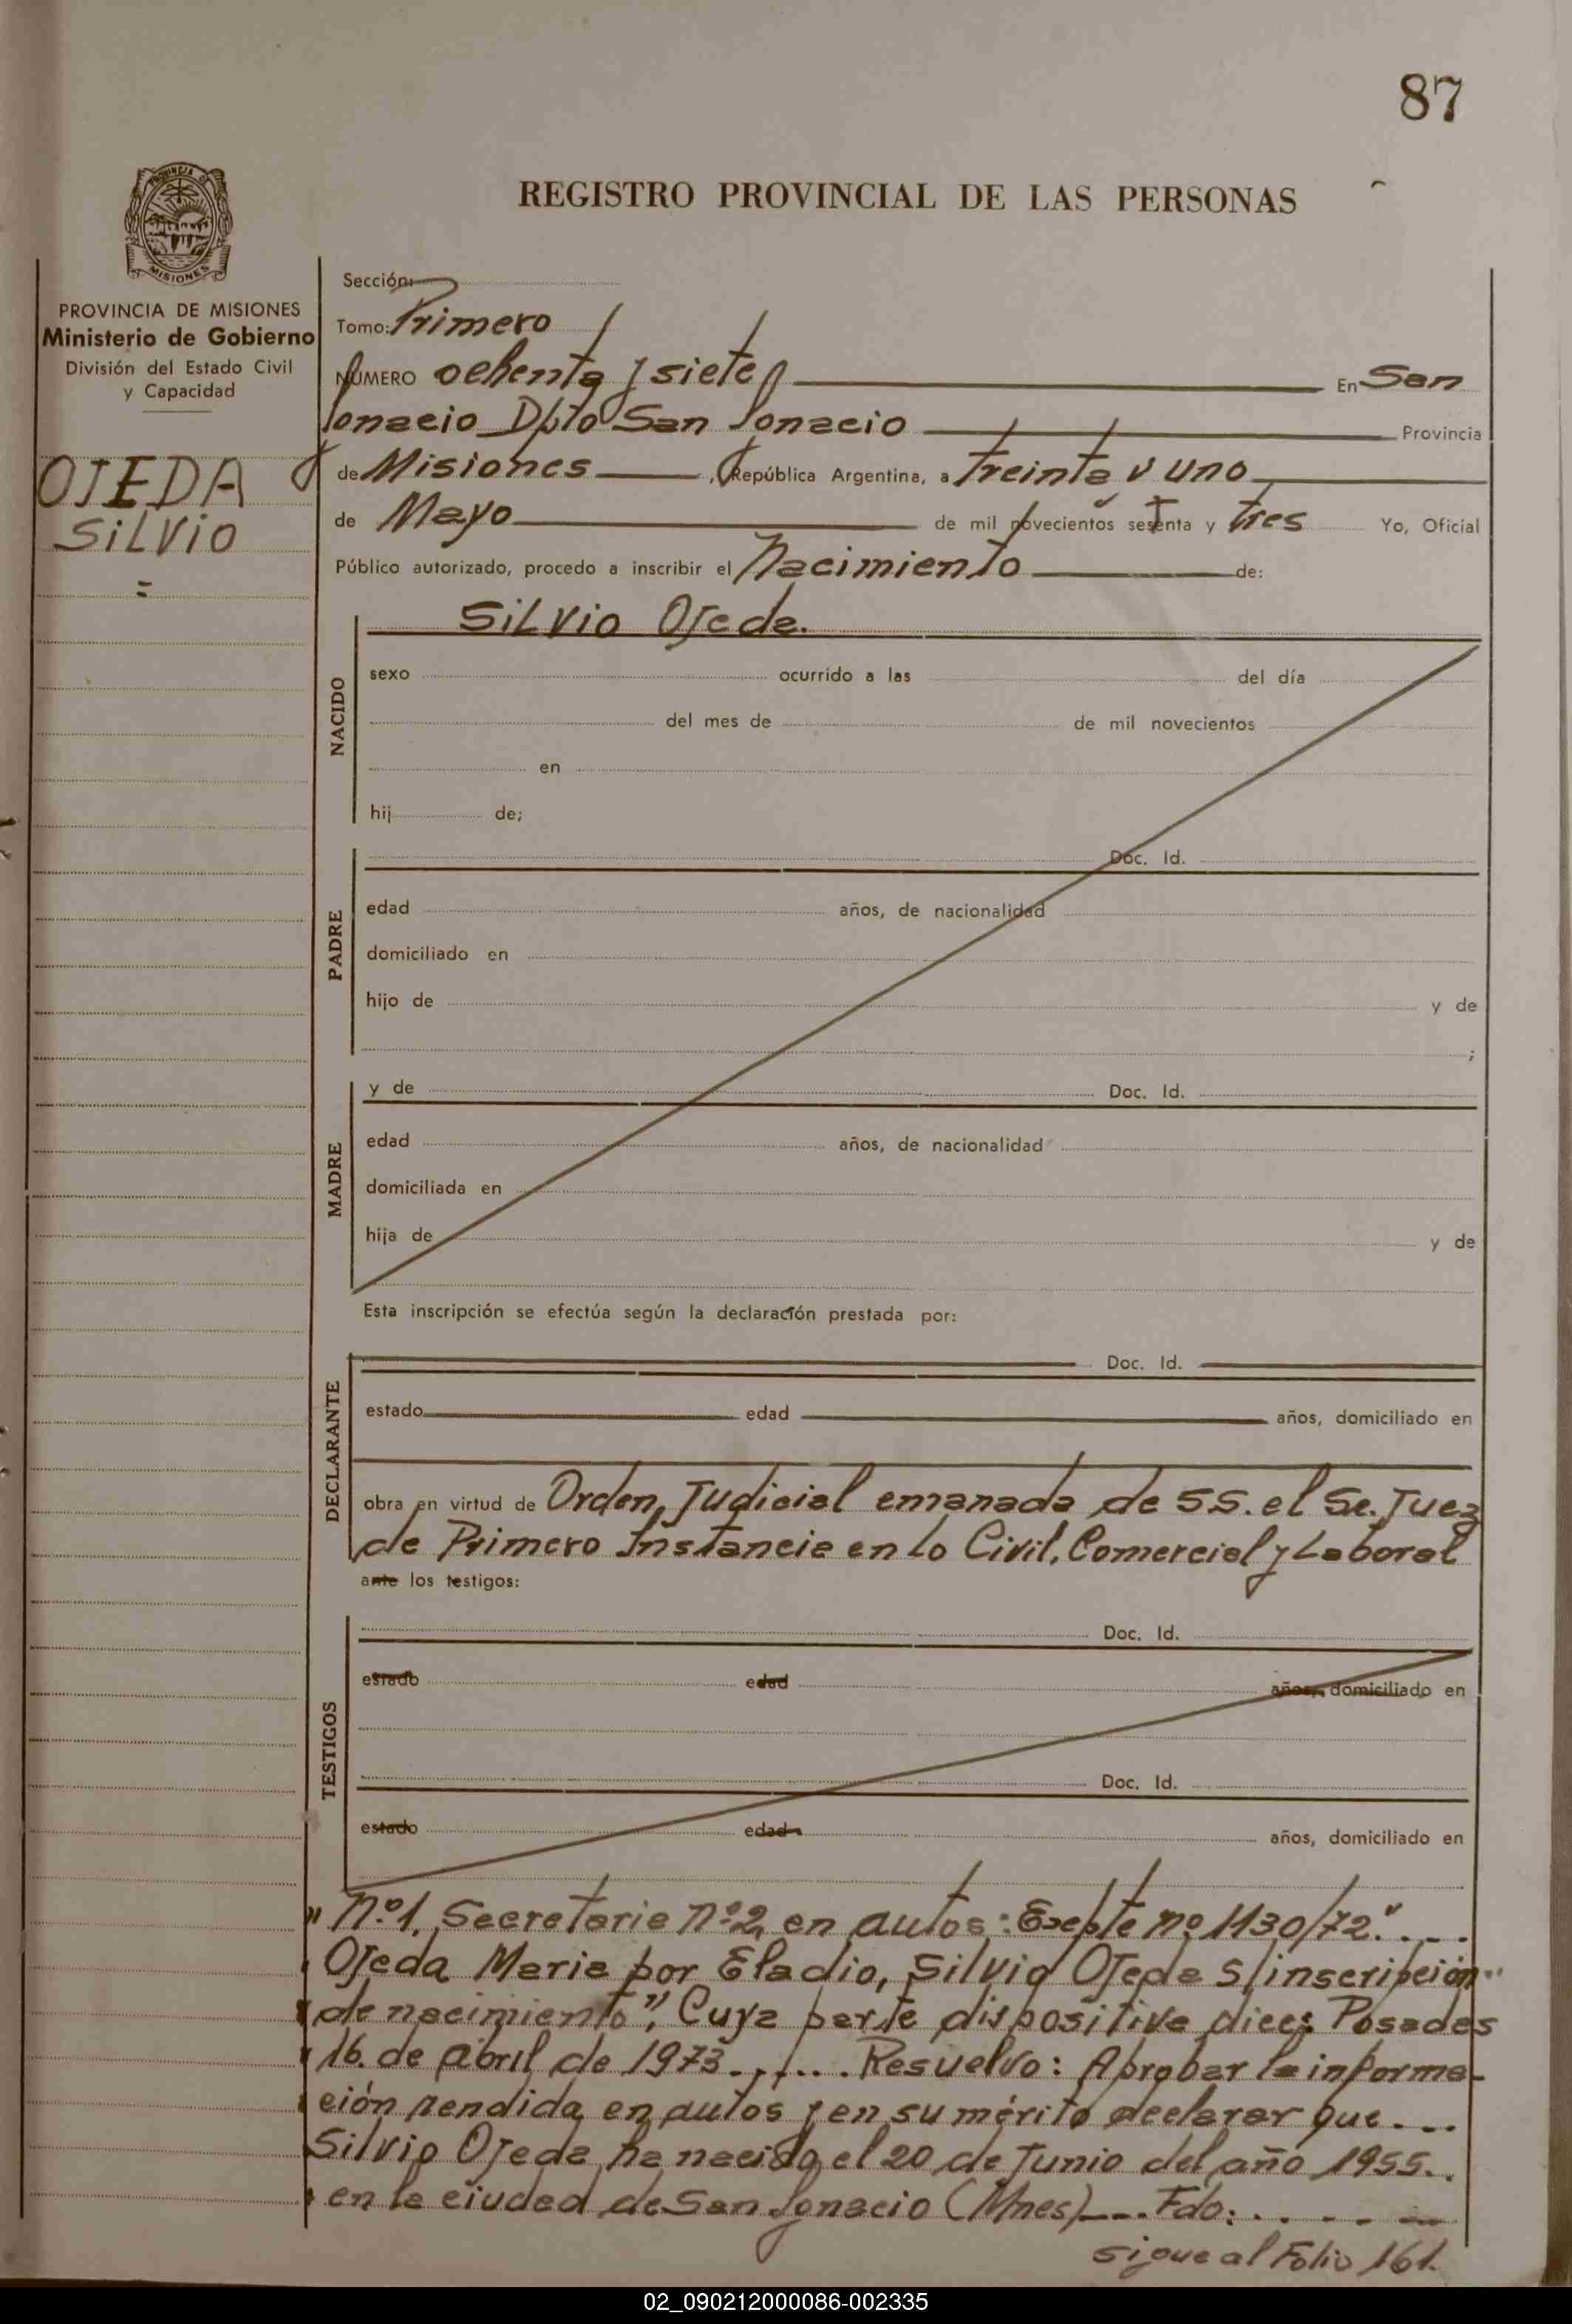 87
REGISTRO PROVINCIAL DE LAS PERSONAS
PROVINCIA DE
MISIONES
PROVINCIA DE MISIONES
Ministerio de Gobierno
División del Estado Civil
y Capacidad
OJEDA
SiLViO
Sección:
Tomo: Primero
NÚMERO ochenta y siete En San
Ignacio Dpto San Ignacio Provincia
de Misiones , República Argentina, a Treinta y uno
de Mayo de mil novecientos sesenta y Tres Yo, Oficial
Público autorizado, procedo a inscribir el Nacimiento de:
SiLViO Ojeda.
NACIDO
sexo ocurrido a las del día
del mes de de mil novecientos
en
hij de;
PADRE
Doc. Id.
edad años, de nacionalidad
domiciliado en
hijo de y de
;
MADRE
y de Doc. Id.
edad años, de nacionalidad
domiciliada en
hija de y de
Esta inscripción se efectúa según la declaración prestada por:
DECLARANTE
Doc. Id.
estado edad años, domiciliado en
obra en virtud de Orden Judicial emanada de S.S. el Sr. Juez
de Primero Instancia en Lo Civil, Comercial y Laboral
ante los testigos:
TESTIGOS
Doc. Id.
estado edad años, domiciliado en
Doc. Id.
estado edad años, domiciliado en
" Nº1, Secretaria Nº2, en autos: Expte nº 1130/72."....
Ojeda Maria por Eladio, Silvio Ojeda S/inscripción
de nacimiento", Cuya parte dispositiva dice: Posadas
16. de abril de 1973...... Resuelvo: Aprobar la informa-
ción rendida en autos y en su mérito declarar que....
Silvio Ojeda ha nacido el 20 de Junio del año 1955..
en la ciudad de San Ignacio (Mnes)--.. Fdo: . . . . .
sigue al Folio 161.
02_090212000086-002335